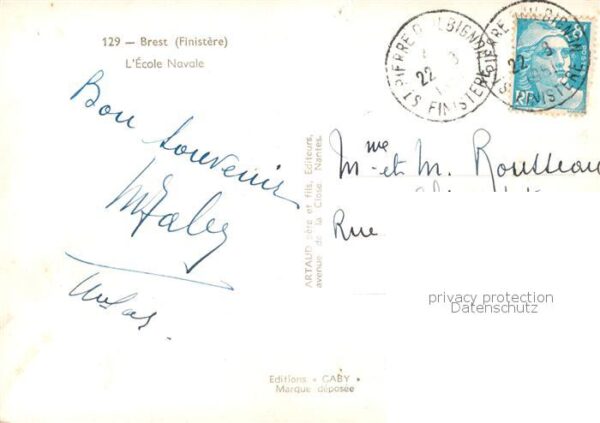 129 — Brest (Finistère)
L'École Navale
Bon souvenir
ARTAUD père et fils, Editeurs,
avenue de la Close, Nantes.
Editions « GABY »
Marque déposée
ST PIERRE QUILBIGNON
22 3
FINISTERE
ST PIERRE QUILBIGNON
22 3
FINISTERE
Mme et M. Rousseau
Rue
privacy protection
Datenschutz